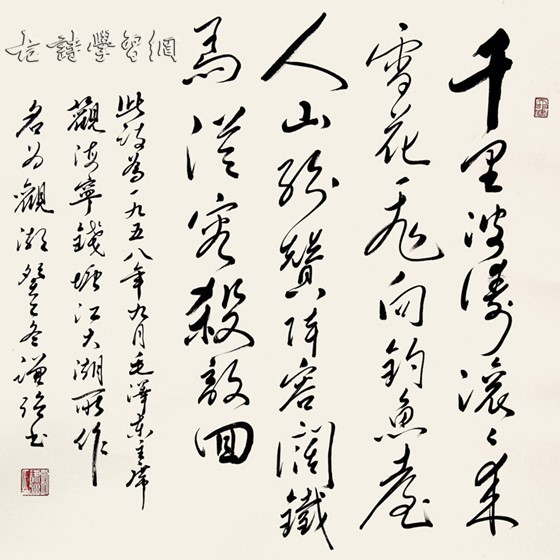 古詩學習網
千里波濤滾〻來
雪花飛向釣魚臺
人山紛贊陣容闊鐵
馬從容殺敵回
此詩為一九五八年九月毛澤東主席
觀海寧錢塘江大潮所作
名為觀潮癸巳冬書